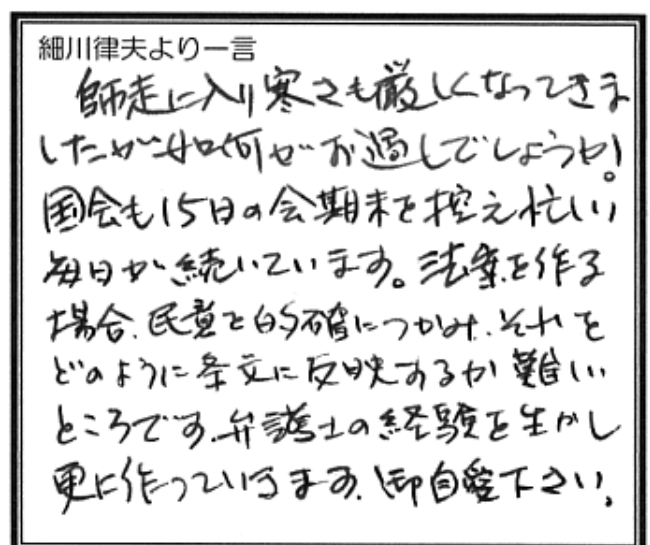 細川律夫より一言
師走に入り寒さも厳しくなってきま
したが如何がお過しでしょうか。
国会も15日の会期末を控え忙しい
毎日が続いています。法案を作る
場合、民意を的確につかみ、それを
どのように条文に反映するか難しい
ところです。弁護士の経験を生かし
更に作っていきます。御自愛下さい。